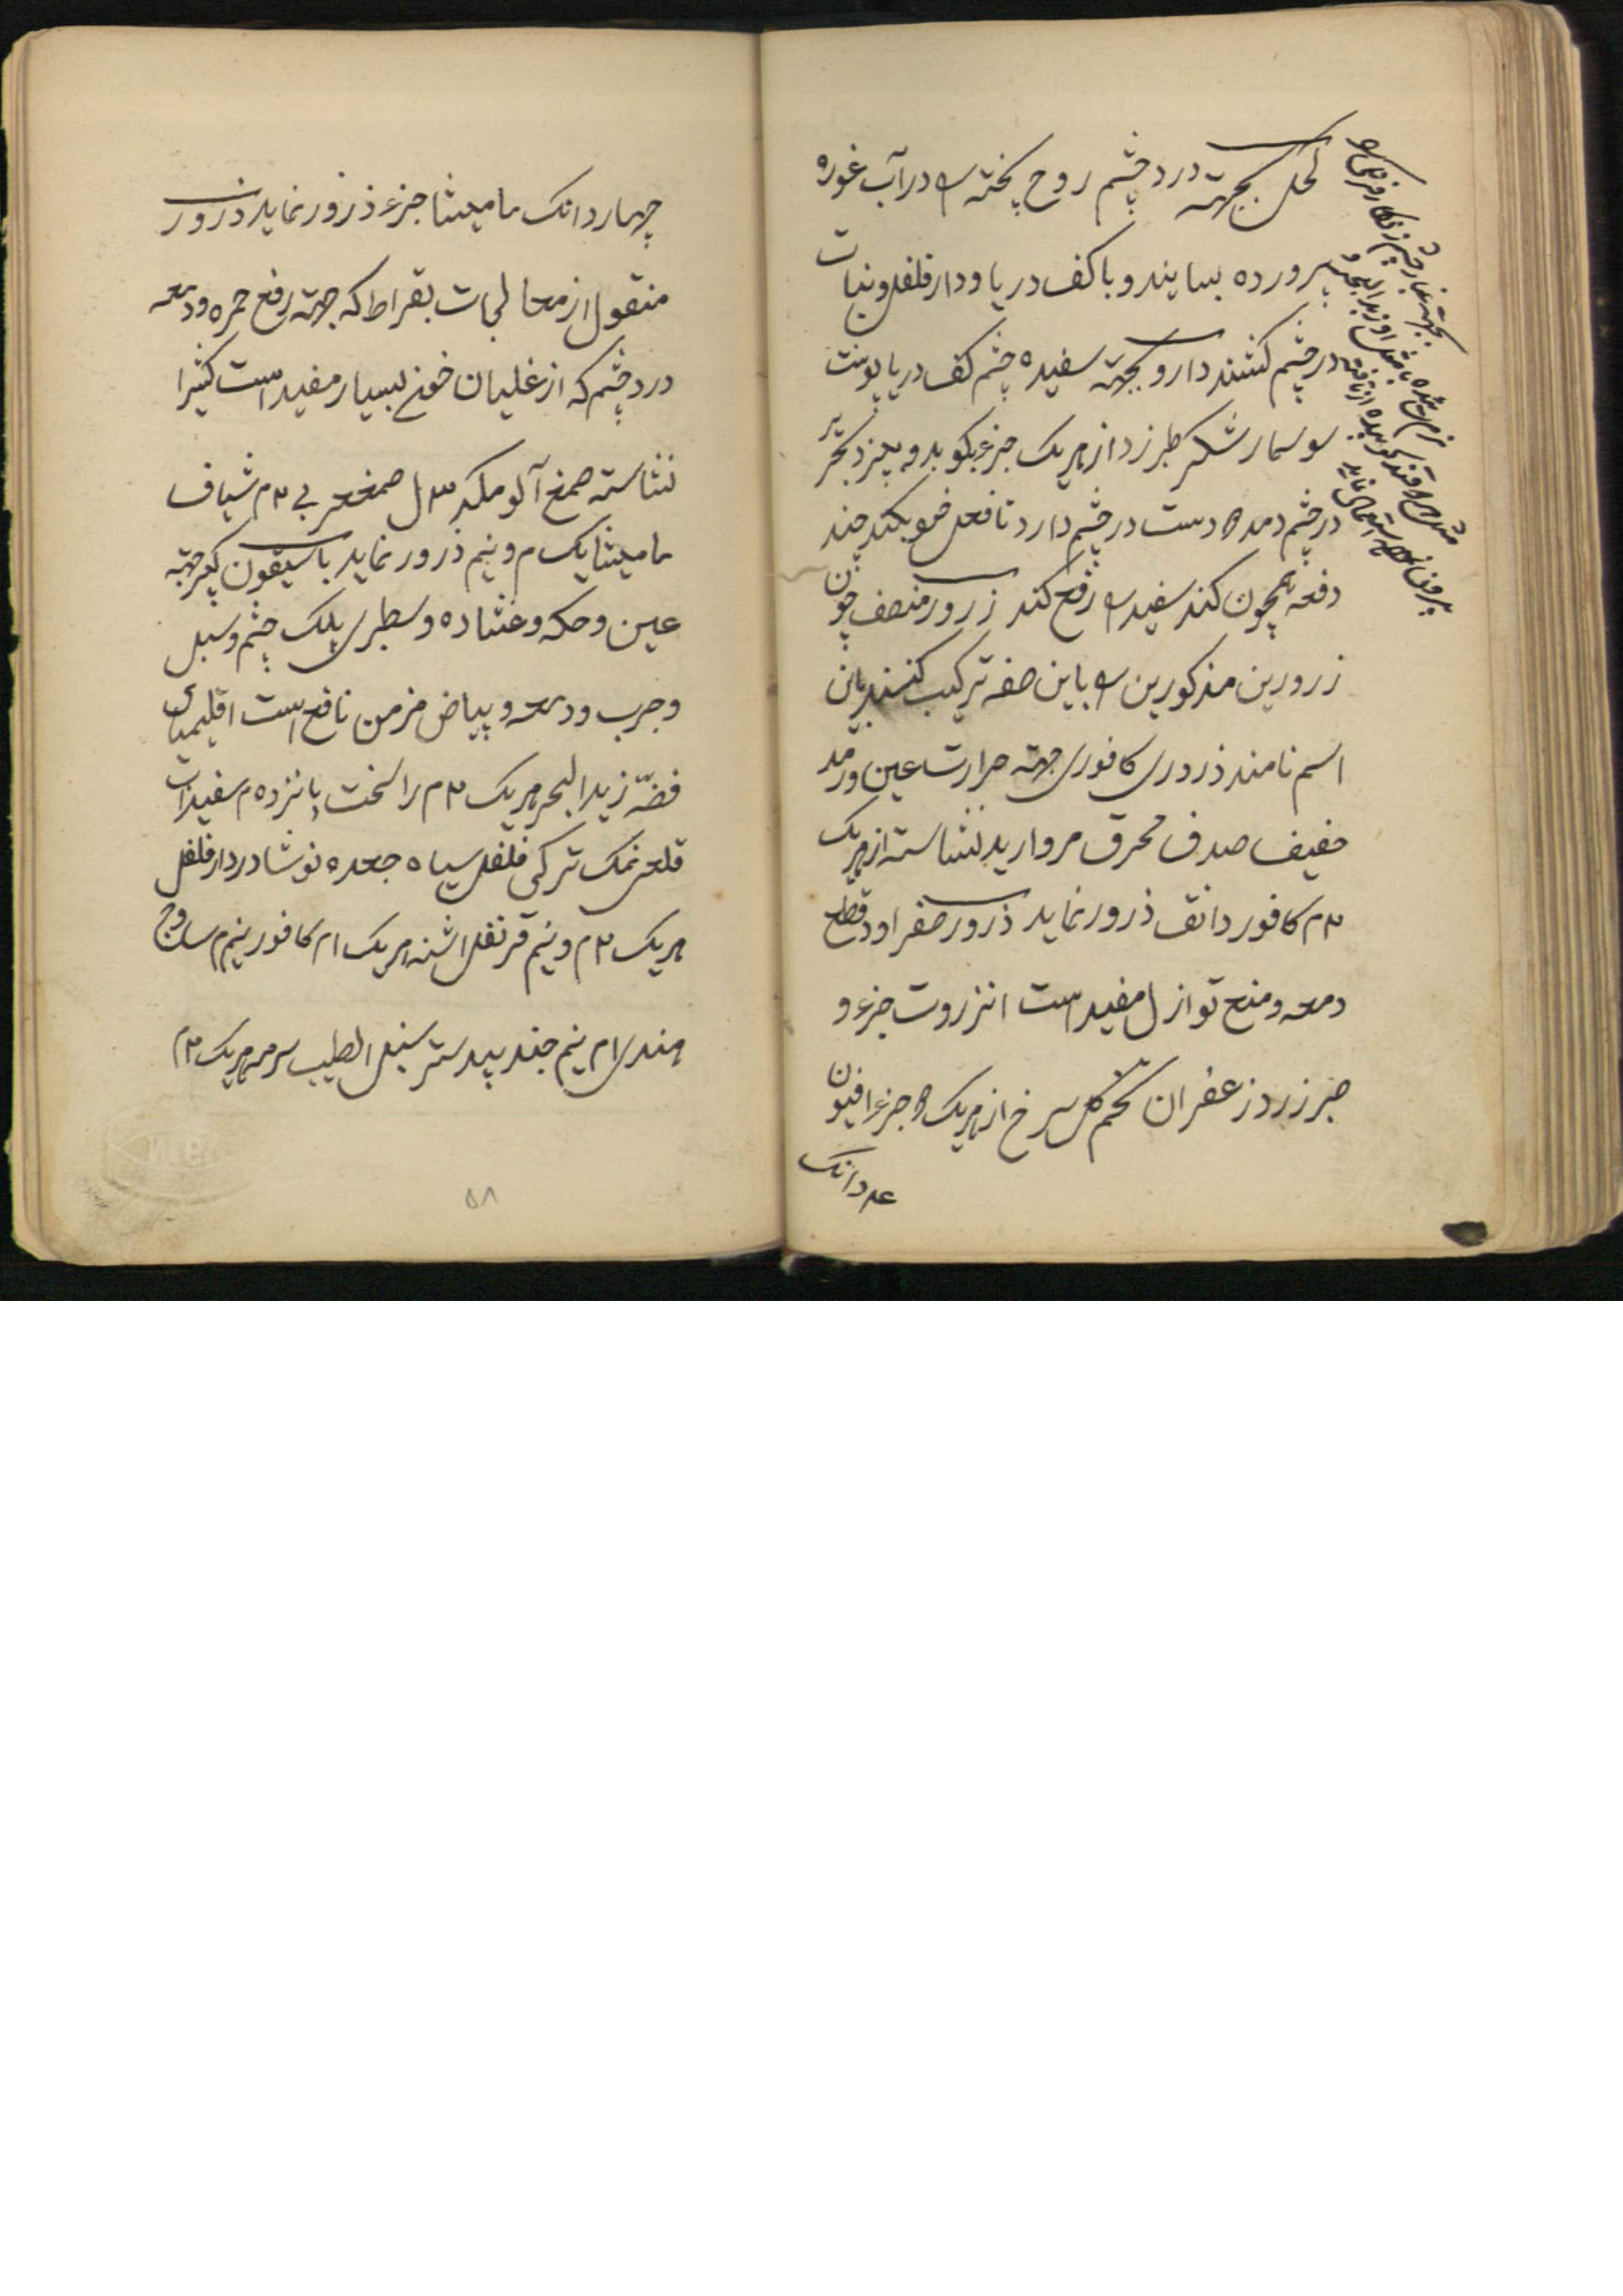 کحل بجهته درد چشم روح پخته را در آب غوره
پرورده بسایند و با کف دریا و دارفلفل و نبات
در چشم کشند دارو بجهته سفیده چشم کف دریا پوست
سوسمار شکر طبرزد از هریک جزء بکوبد و به پیزد بحریر
در چشم دمد و دست در چشم دارد تا فعل خود بکند چند
دفعه همچون کند سفیده را رفع کند زرور منصف چون
زرورین مذکورین را باین صفه ترکیب کنند باین
اسم نامند ذروری کافوری جهته حرارت عین و رمد
خفیف صدف محرق مروارید نشاسته از هریک
۲م کافور دانق ذرور نماید ذرور صفرا و دقطع
دمعه و منع نوازل مفید است انزروت جزء و
صبر زرد زعفران تخم گل سرخ از هریک جزء افیون
دانک
چهار دانک مامیثا جزء ذرور نماید ذرور
منقول از معالجات بقراط که جهته رفع حمره و دمعه
درد چشم که از غلیان خون بسیار مفید است کثیرا
نشاسته صمغ آلو صمغ عربی ۲م شیاف
مامیثا یک م و نیم ذرور نماید باسیقون کبیر جهته
عین و حکه و غشاوه و سطبری پلک چشم و سبل
و جرب و دمعه و بیاض مزمن نافع است اقلیمیای
فضّه زبد البحر هریک ۲م راسخت پانزده م سفیداب
قلعی نمک ترکی فلفل سیاه جعده نوشادر دارفلفل
هریک ۲م و نیم قرنفل اشنه هریک ۱م کافور نیم م ساذج
هندی ۱م نیم جند بیدستر سنبل الطیب سرمه هریک ۲م
۵۸